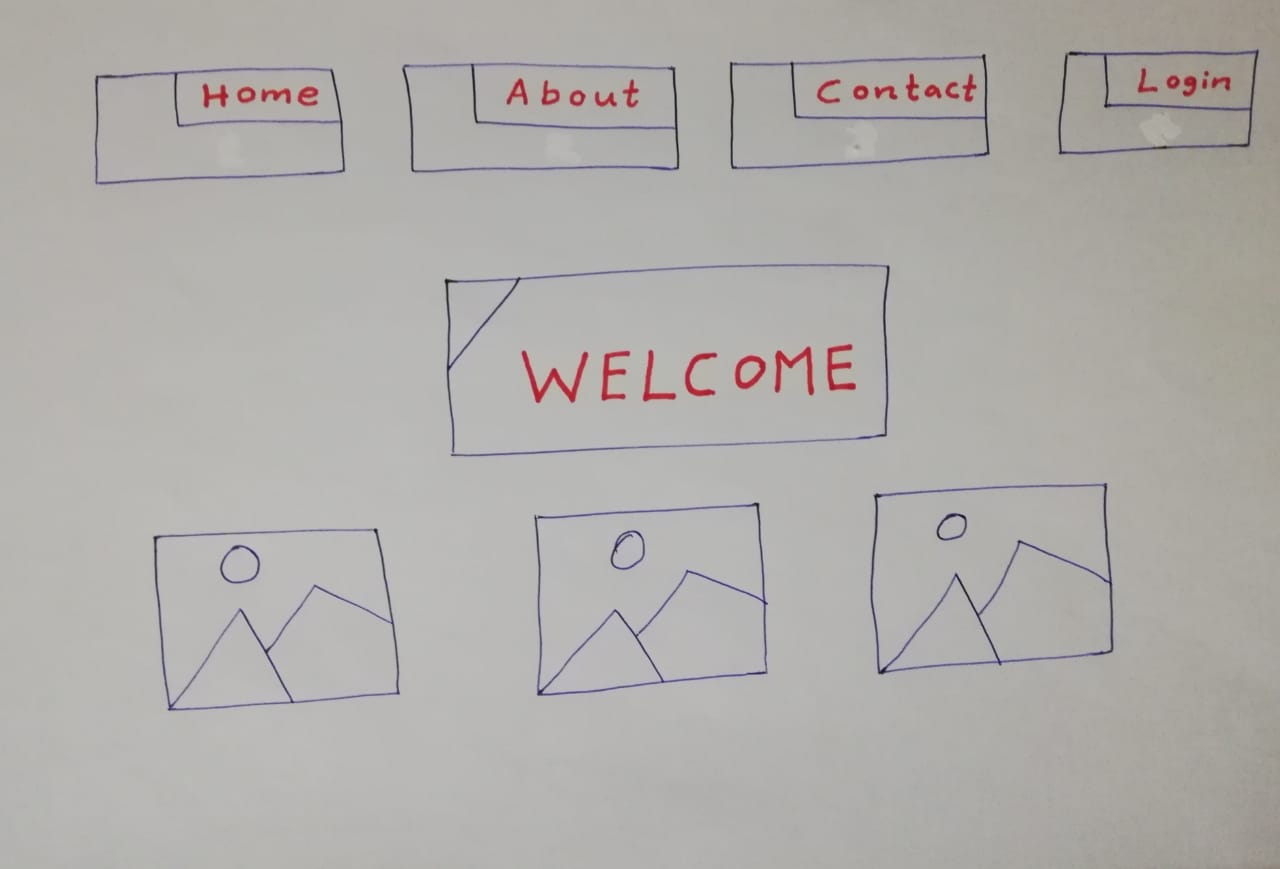 Home About Contact Login
WELCOME